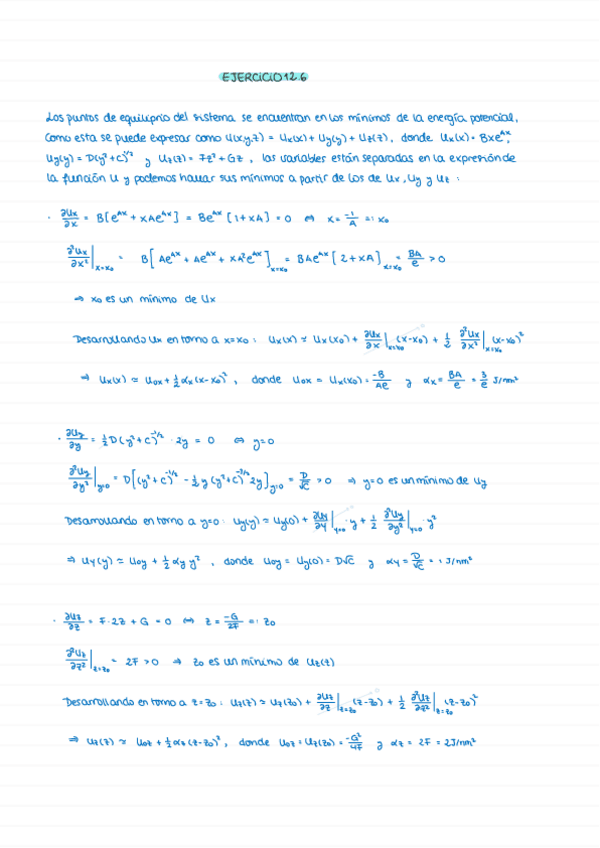 EJERCICIO 12.6
Los puntos de equilibrio del sistema se encuentran en los mínimos de la energía potencial,
como esta se puede expresar como U(x,y,z) = Ux(x) + Uy(y) + Uz(z), donde Ux(x) = Bxe^{Ax},
Uy(y) = D(y²+C)^{1/2} y Uz(z) = Fz² + Gz, las variables están separadas en la expresión de
la función U y podemos hallar sus mínimos a partir de los de Ux, Uy y Uz :
· ∂Ux/∂x = B[e^{Ax} + xAe^{Ax}] = Be^{Ax}[1+xA] = 0 ⇔ x = -1/A =: x₀
∂²Ux/∂x²|_{x=x₀} = B[Ae^{Ax} + Ae^{Ax} + xA²e^{Ax}]_{x=x₀} = BAe^{Ax}[2+xA]_{x=x₀} = BA/e > 0
⇒ x₀ es un mínimo de Ux
Desarrollando Ux en torno a x=x₀ : Ux(x) ≃ Ux(x₀) + ∂Ux/∂x|_{x=x₀} (x-x₀) + 1/2 ∂²Ux/∂x²|_{x=x₀} (x-x₀)²
⇒ Ux(x) ≃ U₀x + 1/2 αx(x-x₀)², donde U₀x = Ux(x₀) = -B/Ae y αx = BA/e = 3/e J/nm²
· ∂Uy/∂y = 1/2 D(y²+C)^{-1/2} · 2y = 0 ⇔ y=0
∂²Uy/∂y²|_{y=0} = D[(y²+C)^{-1/2} - 1/2 y(y²+C)^{-3/2} 2y]_{y=0} = D/√C > 0 ⇒ y=0 es un mínimo de Uy
Desarrollando en torno a y=0 : Uy(y) ≃ Uy(0) + ∂Uy/∂y|_{y=0} · y + 1/2 ∂²Uy/∂y²|_{y=0} · y²
⇒ Uy(y) ≃ U₀y + 1/2 αy y², donde U₀y = Uy(0) = D√C y αy = D/√C = 1 J/nm²
· ∂Uz/∂z = F·2z + G = 0 ⇔ z = -G/2F =: z₀
∂²Uz/∂z²|_{z=z₀} = 2F > 0 ⇒ z₀ es un mínimo de Uz(z)
Desarrollando en torno a z=z₀ : Uz(z) ≃ Uz(z₀) + ∂Uz/∂z|_{z=z₀} (z-z₀) + 1/2 ∂²Uz/∂z²|_{z=z₀} (z-z₀)²
⇒ Uz(z) ≃ U₀z + 1/2 αz(z-z₀)², donde U₀z = Uz(z₀) = -G²/4F y αz = 2F = 2J/nm²